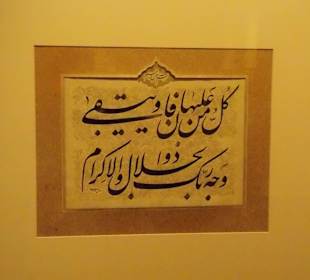 كل من عليها فان ويبقى
وجه ربك ذوالجلال والاكرام